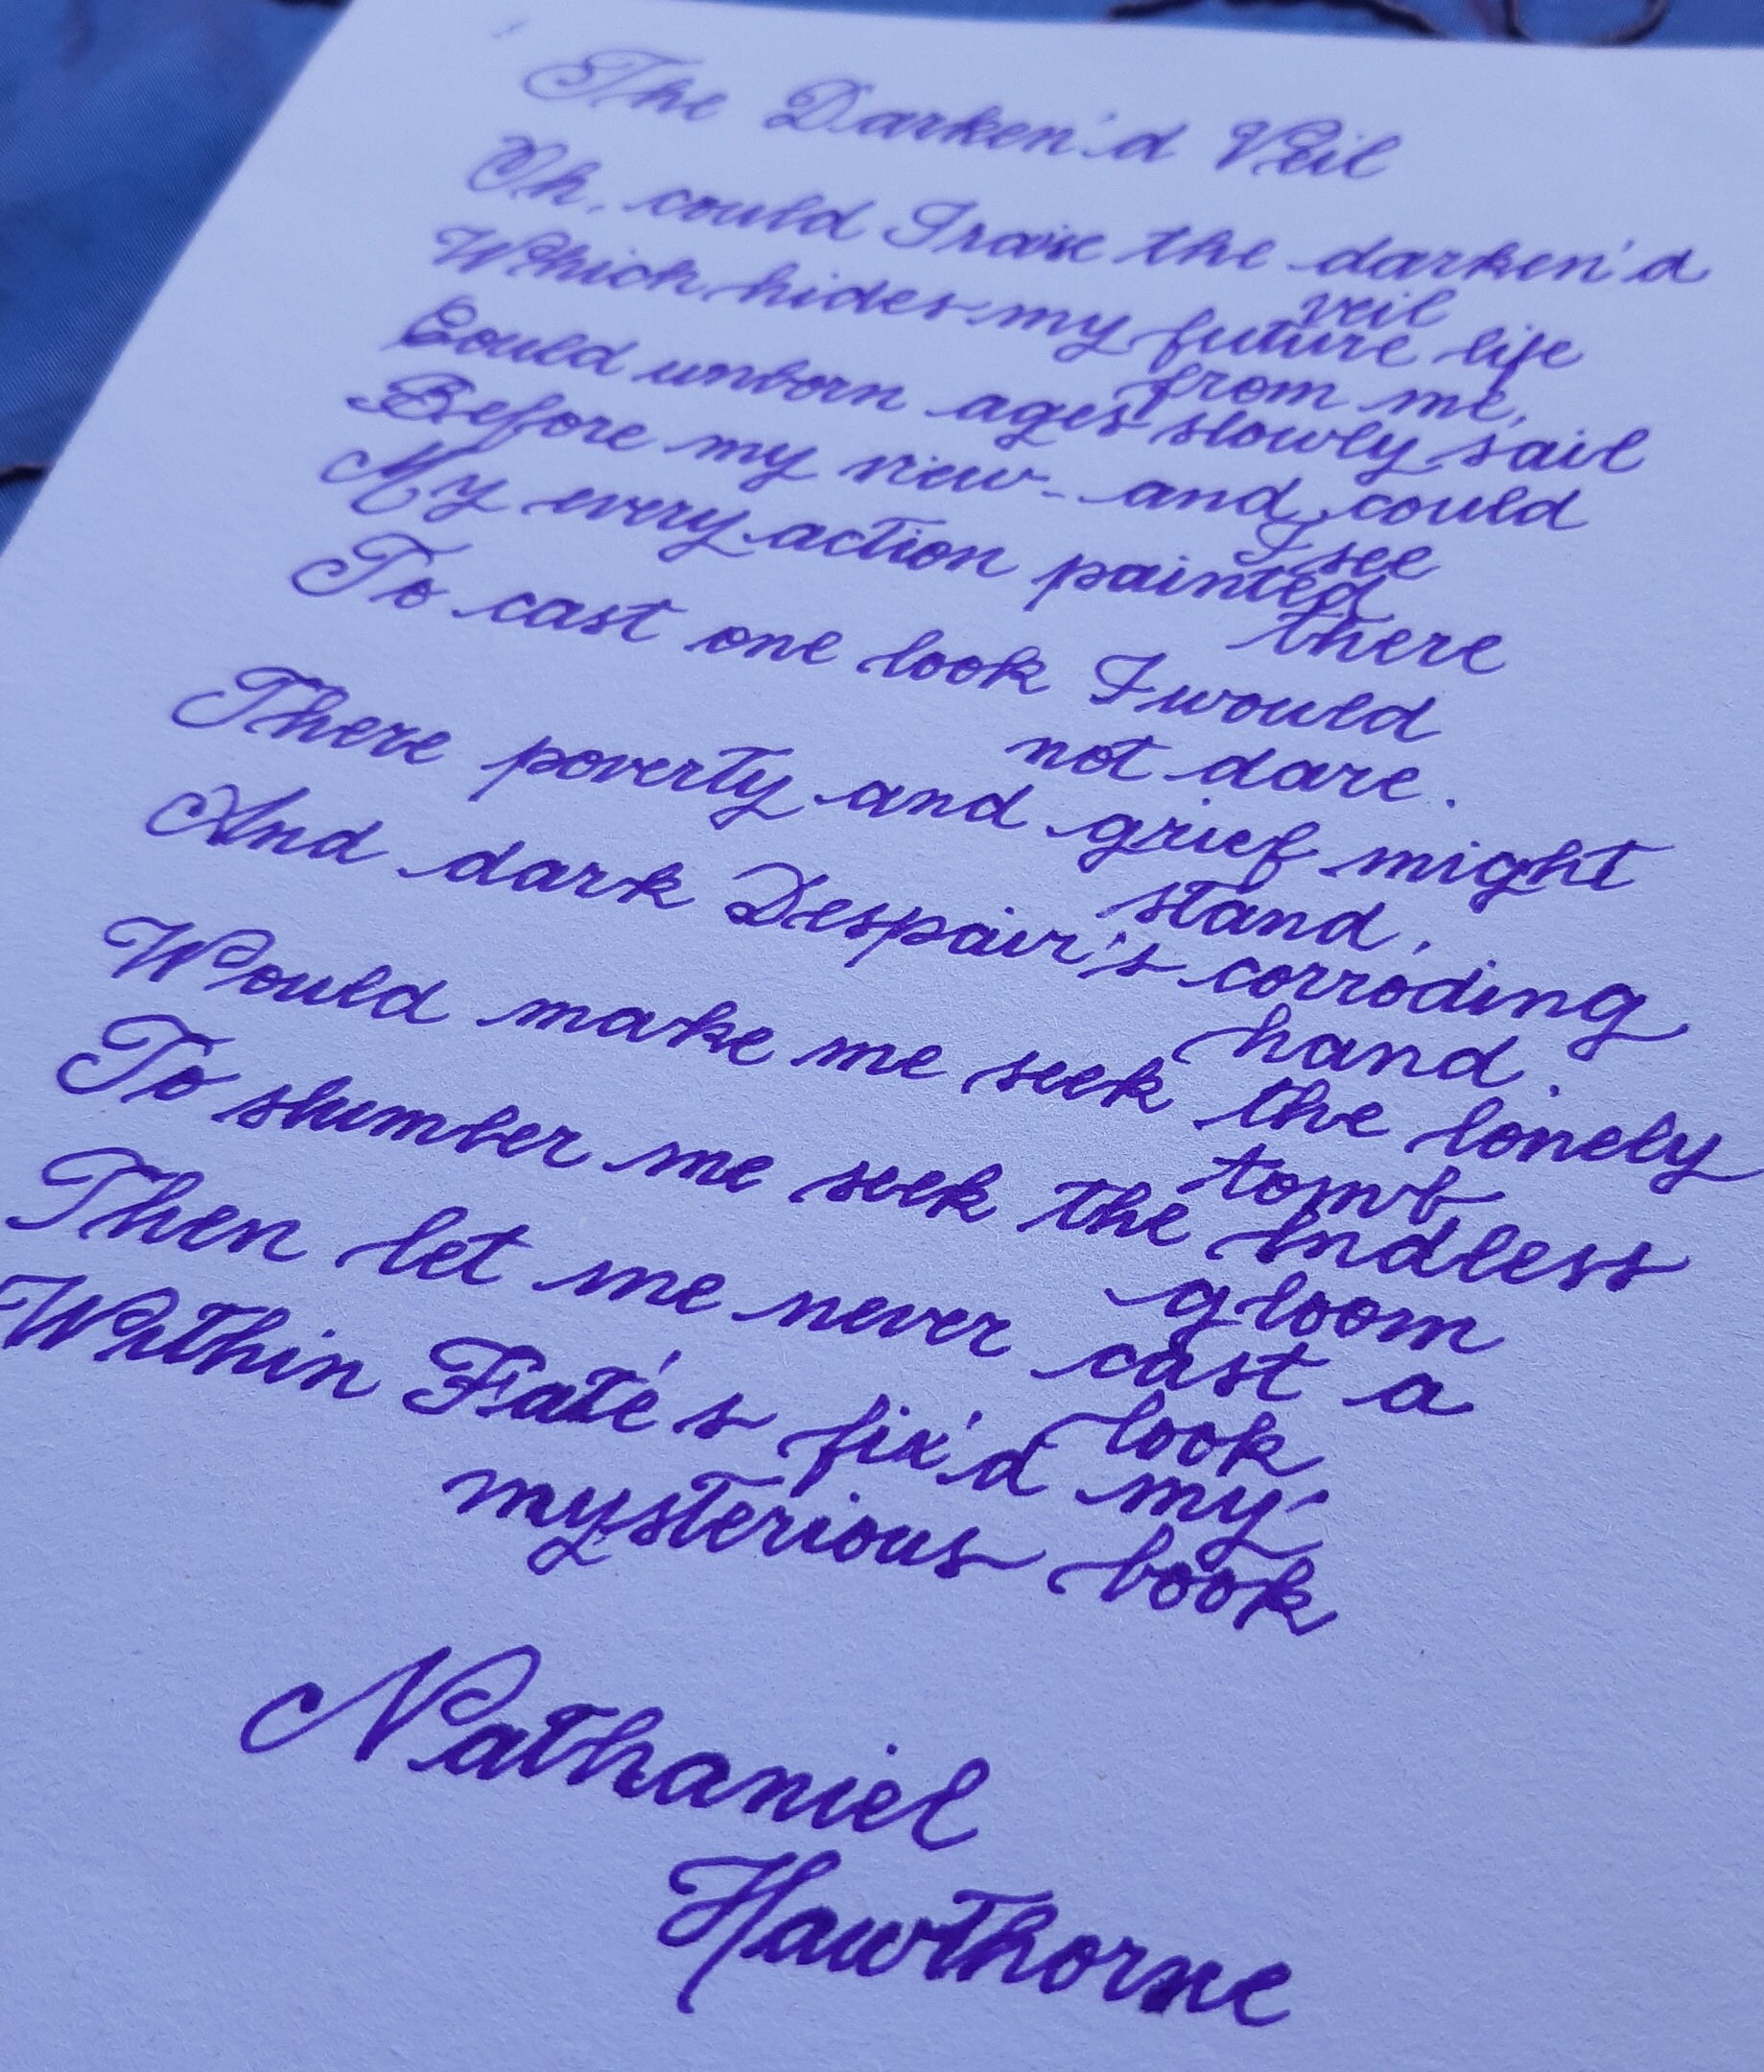 The Darken'd Veil
Oh, could I raise the darken'd
veil
Which hides my future life
from me,
Could unborn ages slowly sail
Before my view-- and could
I see
My every action painted
there
To cast one look I would
not dare.
There poverty and grief might
stand,
And dark Despair's corroding
hand.
Would make me seek the lonely
tomb
To slumber me seek the endless
gloom
Then let me never cast a
look
Within Fate's fix'd my
mysterious book
Nathaniel
Hawthorne